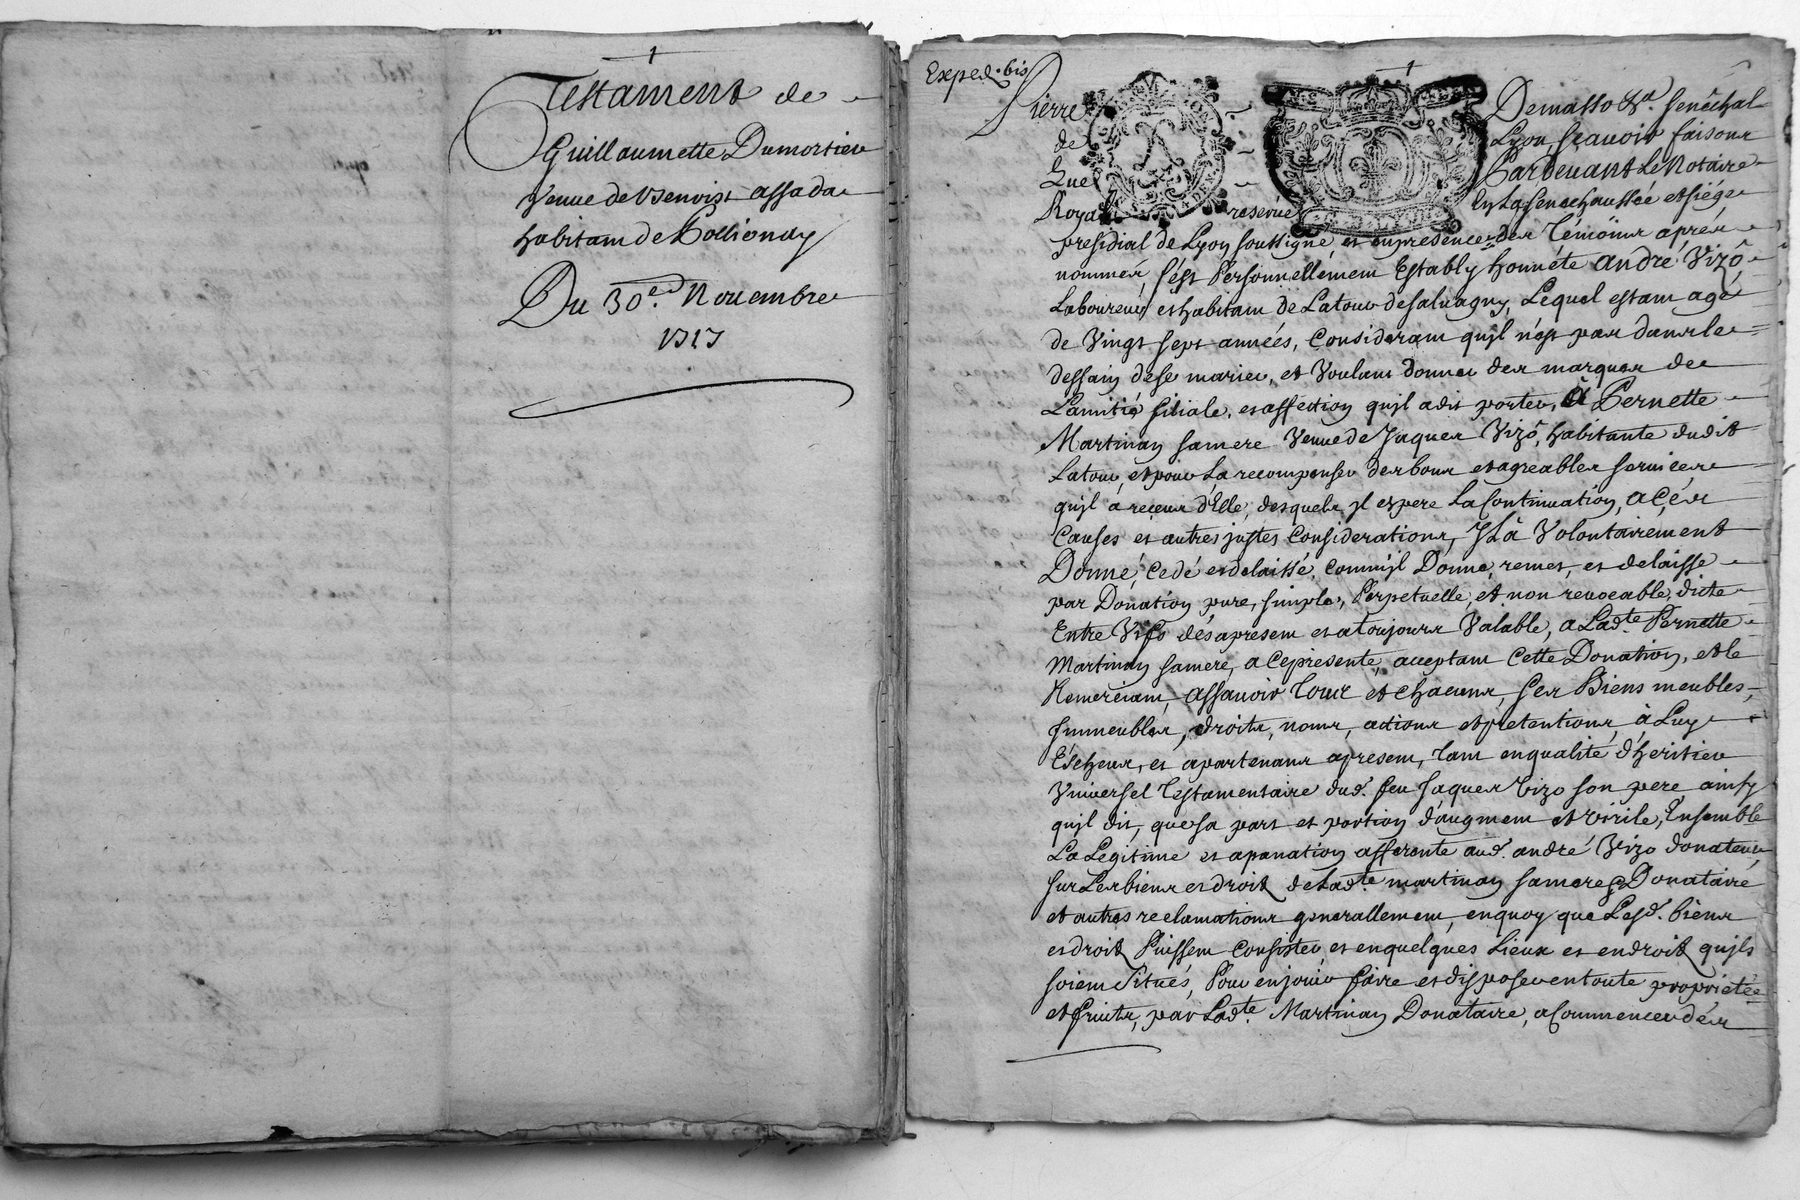 Testament de
Guillaumette Dumortier
Veuve de Benoist assada
habitam de Pollionay
Du 30.e Novembre
1717
Exped. bis
Pierre Demasso &a. senéchal
de Lyon scavoir faisons
Que Pardevant Le Notaire
Royal reservé En La senechaussée et siége
presidial de Lyon soussigné et en presence des Témoins aprés
nommés, s'est Personnellement Estably honnéte André Vizô
Laboureur et habitam de Latour de salvagny, Lequel estam agé
de Vingt sept années, Consideram qu'jl n'est pas dans le
dessain de se marier, et Voulam donner des marques de
L'amitié filiale, et affection qu'jl a dit porter, â Pernette
Martinay sa mere Veuve de Jaques Vizô, habitante dudit
Latour, et pour La recompenser des bons et agreables services
qu'jl a receus d'Elle, desquels jl espere La Continuation, a Cés
Causes et autres justes Considerations, JL à Volontairement
Donné, Cedé et delaissé, comm'jl Donne, remet, et delaisse
par Donation pure, simple, Perpetuelle, et non revocable, dicte
Entre Vifs dés apresem et a toujours Valable, a Lad.te Pernette
Martinay sa mere, a Ce presente, acceptam Cette Donation, et le
Remerciam, assavoir Tous et Chacuns, ses Biens meubles,
Jmmeubles, droits, noms, actions et pretentions, à Luy
Escheus, et apartenans apresem, Tam en qualité d'heritier
Vniversel Testamentaire dud. feu Jaques Vizo son pere ainsy
qu'jl dit, que sa part et portion d'augmem et virile, Ensemble
La Legitime et apanation afferente aud. andré Vizo donateur
sur Les biens et droit de Lad.te martinay sa mere Donataire
et autres reclamations generallemem, en quoy que Lesd. biens
et droit Puissem Consister et en quelques Lieux et endroit qu'jls
soiem Situés, Pour en jouir faire et disposer en toute proprieté
et fruits, par Lad.te Martinay Donataire, a Commencer dés